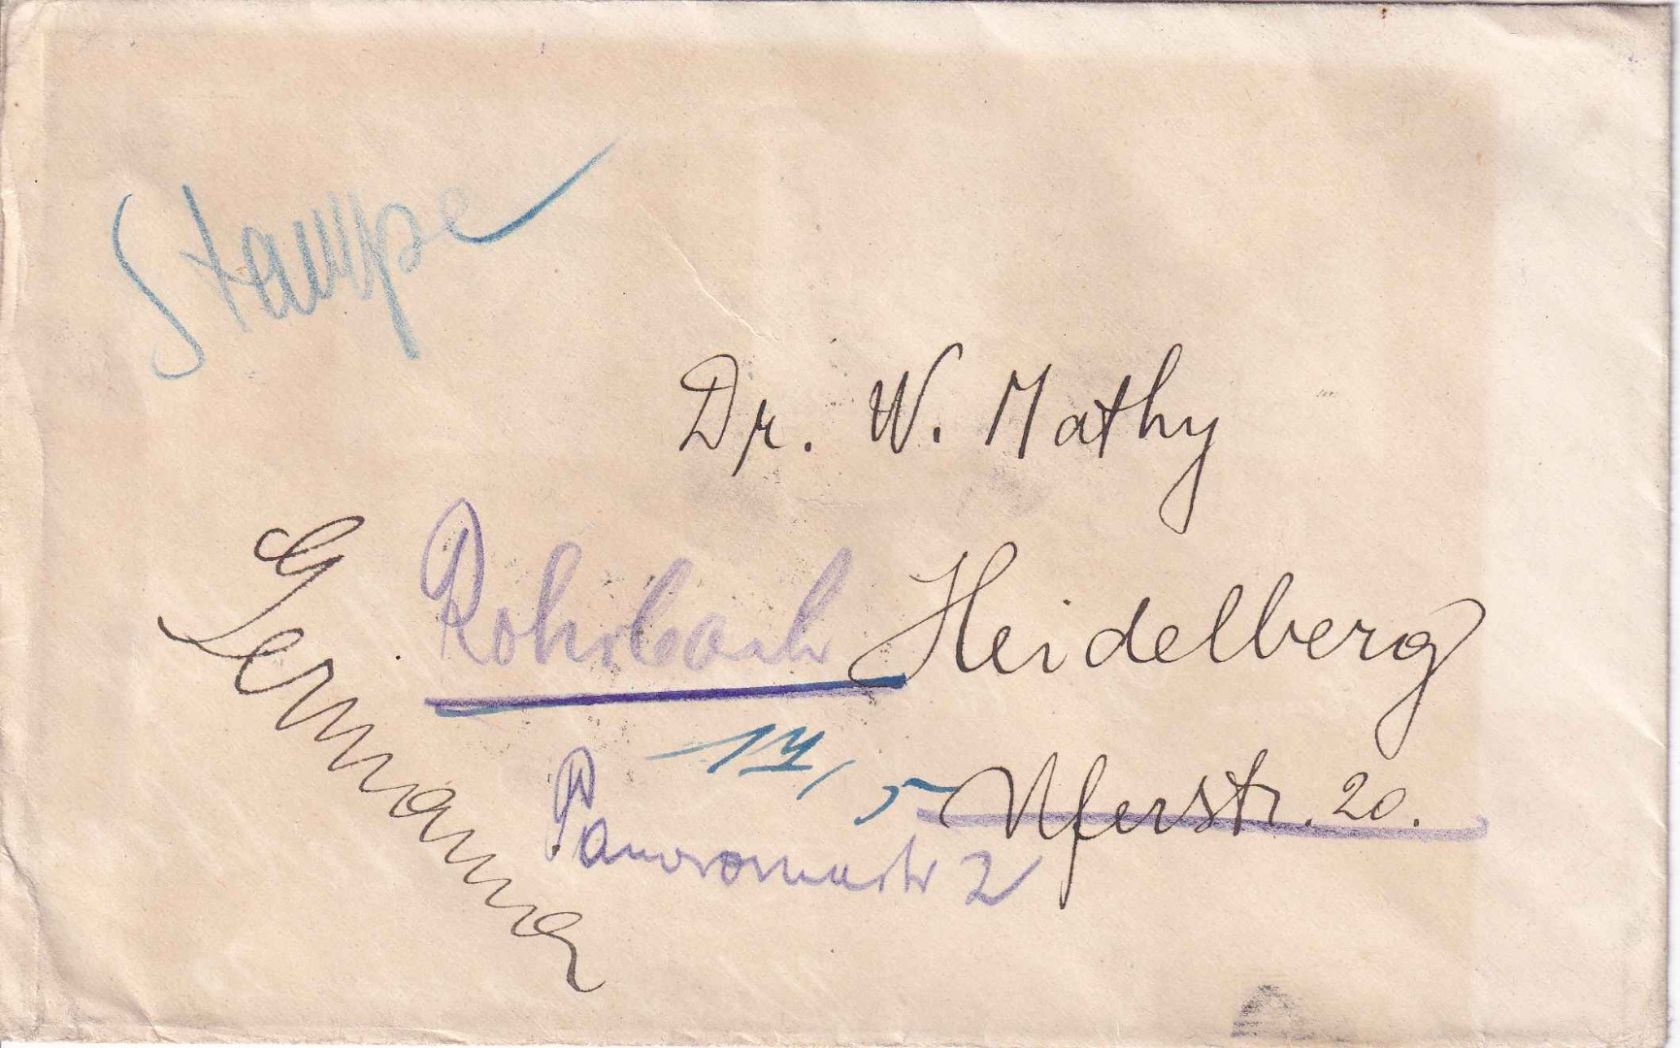 Stampe
Dr. W. Mathy
Rohrbach Heidelberg
Germania
17/5 Uferstr. 20.
Panoramastr 2